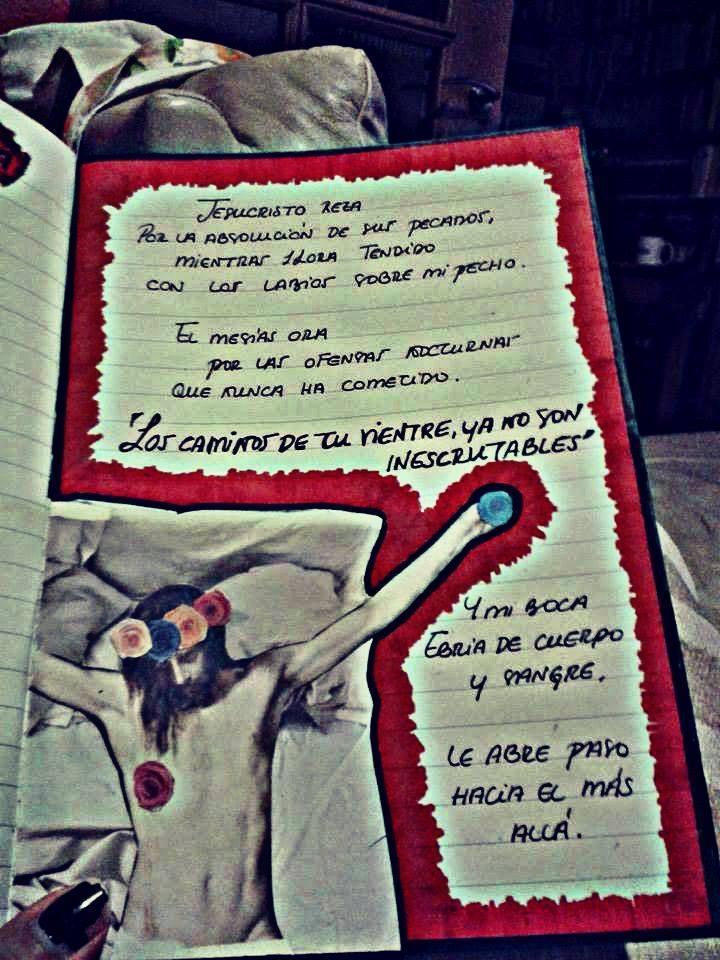 Jesucristo reza
Por la absolución de sus pecados,
mientras llora tendido
con los labios sobre mi pecho.
El mesías ora
por las ofensas nocturnas
que nunca ha cometido.
"Los caminos de tu vientre, ya no son
inescrutables"
Y mi boca
Ebria de cuerpo
y sangre.
Le abre paso
hacia el más
allá.